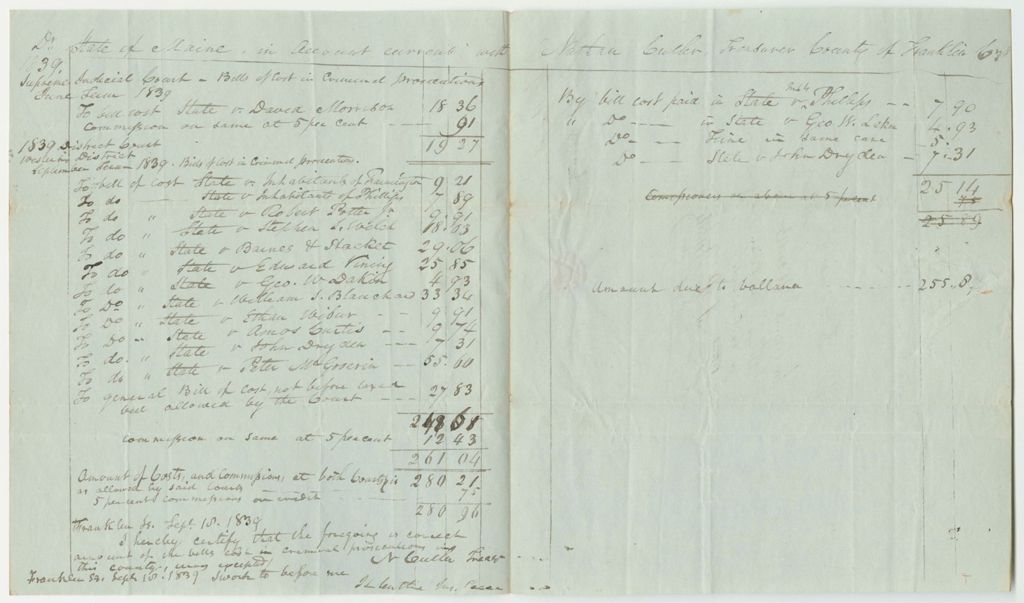 Dr. State of Maine, in Account current with Nathan Cutler, Treasurer County of Franklin Cr.
1839
Supreme Judicial Court - Bills of Cost in Criminal prosecutions
June Term 1839
To bill cost State v. David Morrison 18 36
commission on same at 5 per cent 91
19 27
1839 District Court
Western District
September Term 1839. Bills of cost in Criminal prosecution.
To bill of cost State v. Inhabitants of Farmington 9 21
To do State v Inhabitants of Phillips 7 89
To do " State v Robert Potter Jr. 9.91
To do " State v Stephen L. Welch 18.03
To do " State v Baines & Hacket 29.06
To do " State v Edward Vining 25 85
To do " State v Geo. W. Dakin 4 93
To Do " State v William S. Blanchard 33 34
To Do " State v Ethan Wilbur 9 91
To Do " State v Amos Curtis 9 74
To do. " State v John Dryden 7 31
To do " State v Peter 55.60
To general Bill of cost, not before taxed 27 83
but allowed by the Court
248 61
commission on same at 5 per cent 12 43
261 04
Amount of Costs, and Commissions, at both Courts 280 21
as allowed by said Courts
5 per cent commissions on credit 75
280 96
Franklin Ss. Sept. 18. 1839
I hereby certify that the foregoing is correct
amount of the bills cost in criminal prosecutions in
this county,
N Cutler Treasr
Franklin Ss. Sept. 18. 1839 Sworn to before me
Jus. Peace
By bill cost paid in State v. Inhbts Phillips 7 90
" Do in State v Geo W. 4.93
Do Fine in same case 5.
Do State v John Dryden 7.31
25 14
Commissions on above at 5 percent 75
25 89
Amount due to ballance 255.8